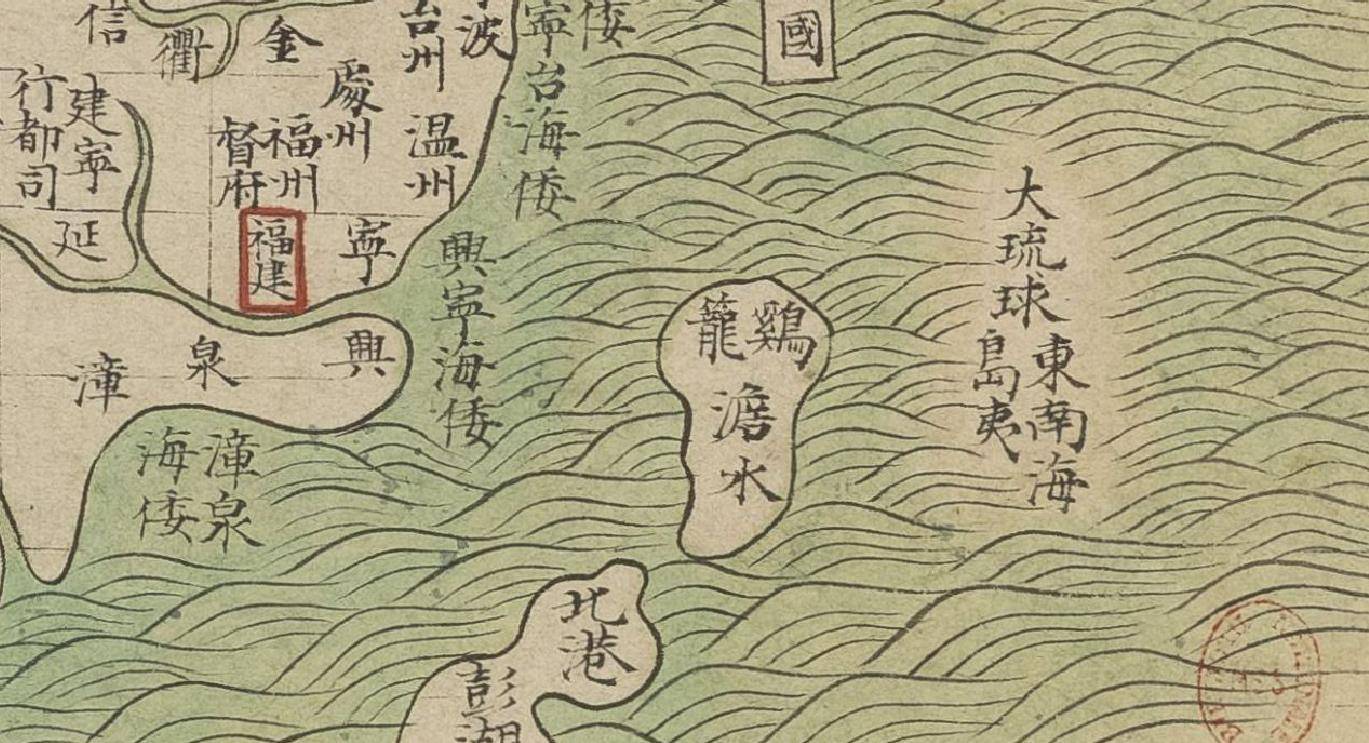 信
衢
金
台州
波
寧
倭
國
行都司
建寧
延
處州
督府
福州
福建
温州
寧
台海倭
興寧海倭
漳
泉
興
漳泉
海倭
鷄籠
澹水
大琉球
東南海
島夷
北港
彭湖